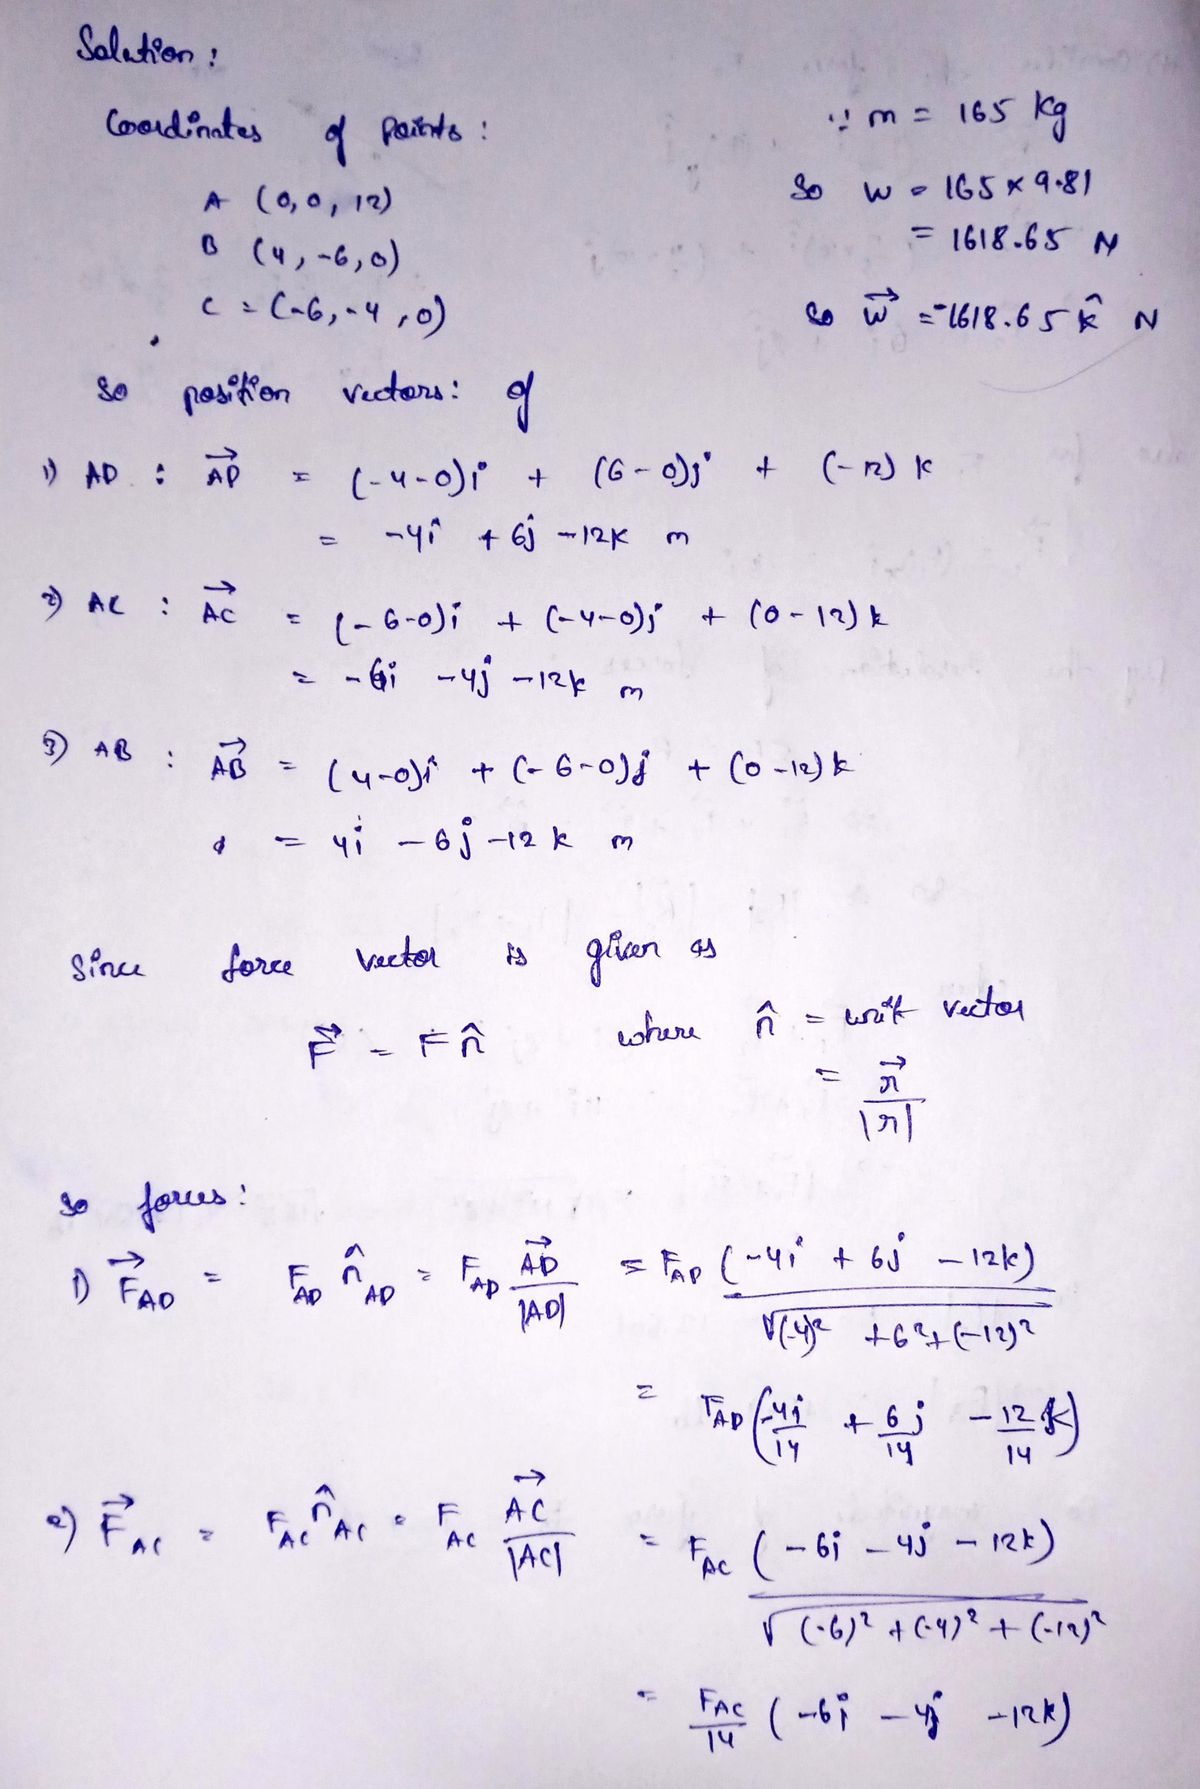 Solution :
Coordinates of points :
∵ m = 165 kg
A (0, 0, 12)
So w = 165 × 9.81
B (4, -6, 0)
= 1618.65 N
C = (-6, -4, 0)
So w⃗ = -1618.65 k̂ N
So position vectors: of
1) AD : AD⃗ = (-4-0)i + (6-0)j + (-12) k
= -4i + 6j - 12k m
2) AC : AC⃗ = (-6-0)i + (-4-0)j + (0-12) k
= -6i - 4j - 12k m
3) AB : AB⃗ = (4-0)i + (-6-0)j + (0-12) k
= 4i - 6j - 12 k m
Since force vector is given as
F⃗ = F n̂ where n̂ = unit vector
= r⃗ / |r|
So forces :
1) F⃗AD = FAD n̂AD = FAD AD⃗ / |AD| = FAD (-4i + 6j - 12k) / √(-4)² + 6² + (-12)²
= FAD (-4i/14 + 6/14 j - 12/14 k)
2) F⃗AC = FAC n̂AC = FAC AC⃗ / |AC| = FAC (-6i - 4j - 12k) / √(-6)² + (-4)² + (-12)²
= FAC/14 (-6i - 4j - 12k)